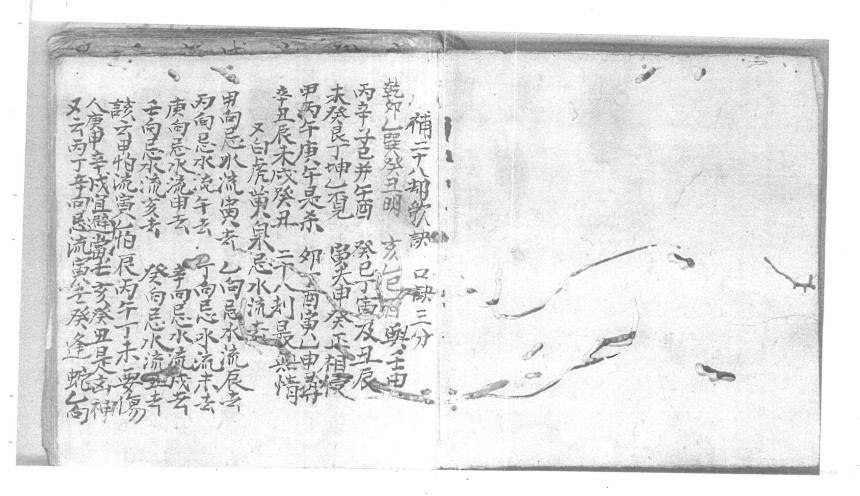 補二十八刼歌訣 口訣三分
乾卯乙巽癸丑明 亥乙巳 與壬申
丙辛子巳并午酉 癸巳丁寅及丑辰
未癸艮丁坤乙 寅戌申癸正相侵
甲丙午庚午是杀 卯丁酉寅乙申
辛丑辰未戌癸丑 二十八刹最無情
又白虎黄泉忌水流去
甲向忌水流寅去 乙向忌水流辰去
丙向忌水流午去 丁向忌水流未去
庚向忌水流申去 辛向忌水流戌去
壬向忌水流亥去 癸向忌水流丑去
該云甲怕流寅乙怕辰丙午丁未要傷
人庚申辛戌宜避當壬亥癸丑是凶神
又云丙丁辛向忌流寅壬癸逢蛇乙向